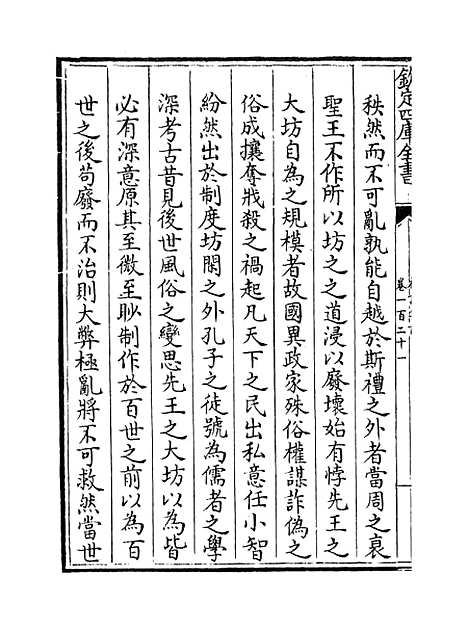 欽定四庫全書
卷一百二十一
秩然而不可亂孰能自越於斯禮之外者當周之衰
聖王不作所以坊之之道浸以廢壞始有悖先王之
大坊自為之規模者故國異政家殊俗權謀詐偽之
俗成攘奪戕殺之禍起凡天下之民出私意任小智
紛然出於制度坊閑之外孔子之徒號為儒者之學
深考古昔見後世風俗之變思先王之大坊以為皆
必有深意原其至微至眇制作於百世之前以為百
世之後苟廢而不治則大弊極亂將不可救然當世